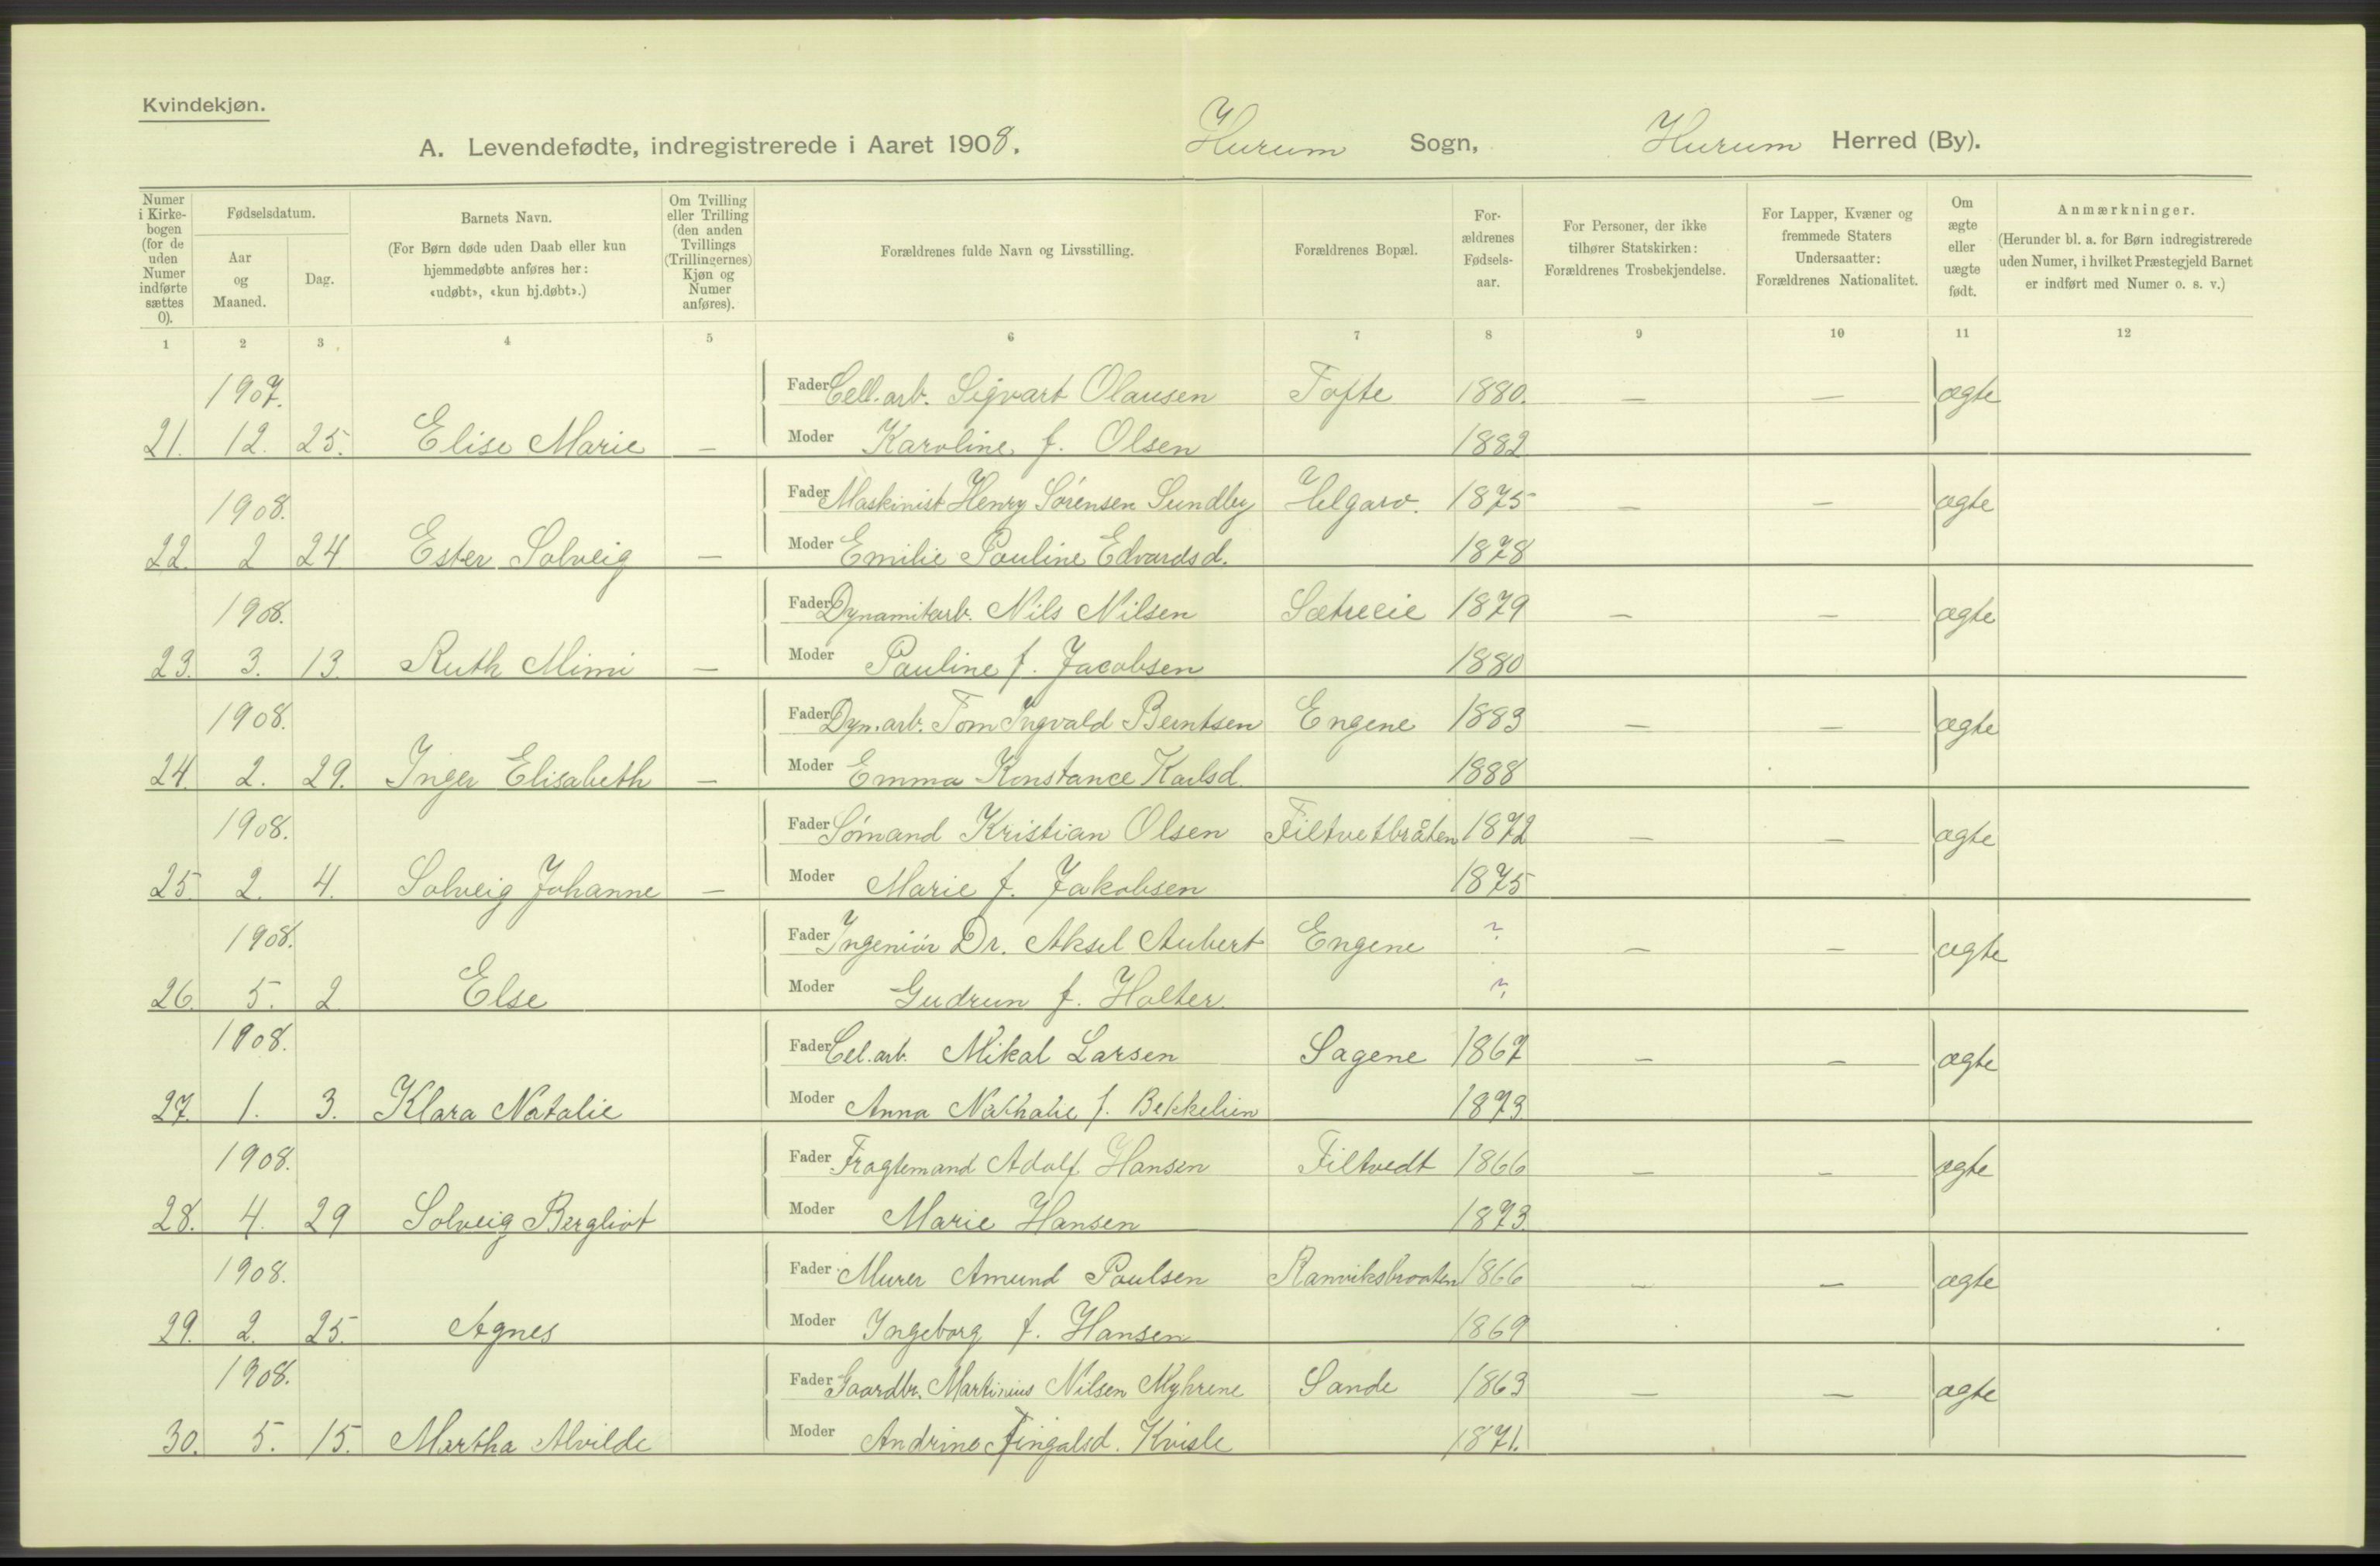 Kvindekjøn.
A. Levendefødte, indregistrerede i Aaret 1908. Hurum Sogn, Hurum Herred (By).
Numer i Kirkebogen (for de uden Numer indførte sættes 0).
Fødselsdatum.
Aar og Maaned.
Dag.
Barnets Navn.
(For Børn døde uden Daab eller kun hjemmedøbte anføres her: «udøbt», «kun hj.døbt».)
Om Tvilling eller Trilling (den anden Tvillings (Trillingernes) Kjøn og Numer anføres).
Forældrenes fulde Navn og Livsstilling.
Forældrenes Bopæl.
Forældrenes Fødselsaar.
For Personer, der ikke tilhører Statskirken: Forældrenes Trosbekjendelse.
For Lapper, Kvæner og fremmede Staters Undersaatter: Forældrenes Nationalitet.
Om ægte eller uægte født.
Anmærkninger.
(Herunder bl. a. for Børn indregistrerede uden Numer, i hvilket Præstegjeld Barnet er indført med Numer o. s. v.)
1 2 3 4 5 6 7 8 9 10 11 12
1907. Fader Cell.arb. Sigvart Olausen Tofte 1880. — — ægte
21. 12. 25. Elise Marie — Moder Karoline f. Olsen 1882
1908. Fader Maskinist Henry Sørensen Sundby 1875 — — ægte
22. 2 24 Ester Solveig — Moder Emilie Pauline Edvardsd. 1878
1908. Fader Dynamitarb. Nils Nilsen Sætreeie 1879 — — ægte
23. 3. 13. Ruth Mimi — Moder Pauline f. Jacobsen 1880
1908. Fader Dyn.arb. Tom Ingvald Berntsen Engene 1883 — — ægte
24. 2. 29. Inger Elisabeth — Moder Emma Konstance Karlsd. 1888
1908. Fader Sømand Kristian Olsen Filtvetbråten 1872 — — ægte
25 2. 4. Solveig Johanne — Moder Marie f. Jakobsen 1875
1908. Fader Ingeniør Dr. Aksel Aubert Engene ? — — ægte
26. 5. 2 Else Moder Gudrun f. Holter ?
1908. Fader Cel.arb. Mikal Larsen Sagene 1867 — — ægte
27. 1. 3. Klara Natalie Moder Anna Nathalie f. Bekkelien 1873
1908. Fader Fragtemand Adolf Hansen Filtvedt 1866 — — ægte
28. 4. 29 Solveig Bergliot Moder Marie Hansen 1873
1908. Fader Murer Amund Paulsen Ranviksbraaten 1866 — — ægte
29. 2. 25. Agnes Moder Ingeborg f. Hansen 1869
1908. Fader Gaardbr. Martinius Nilsen Myhrene Sande 1863 — — ægte
30. 5. 15. Martha Alvilde Moder Andrine Fingalsd. Kvisle 1871.